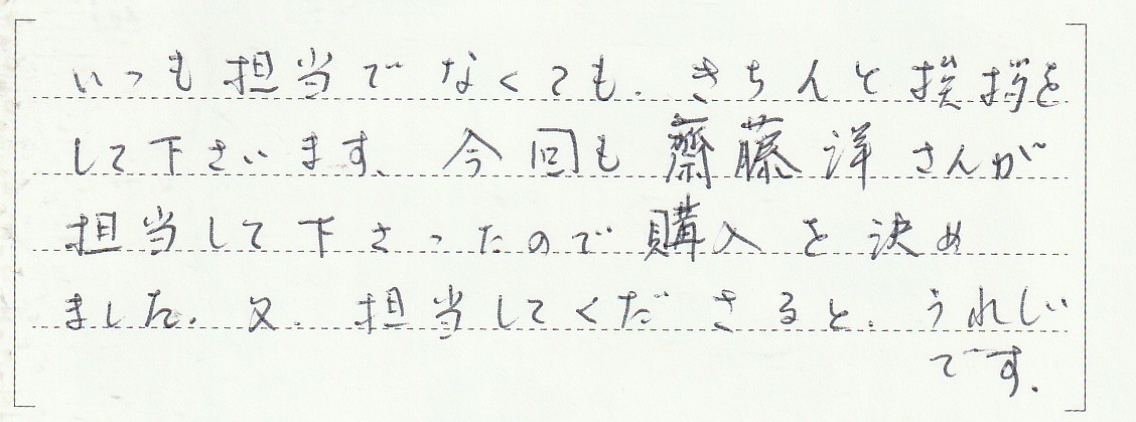 いつも担当でなくても、きちんと挨拶を
して下さいます。今回も齋藤洋さんが
担当して下さったので購入を決め
ました。又、担当してくださると、うれしい
です。